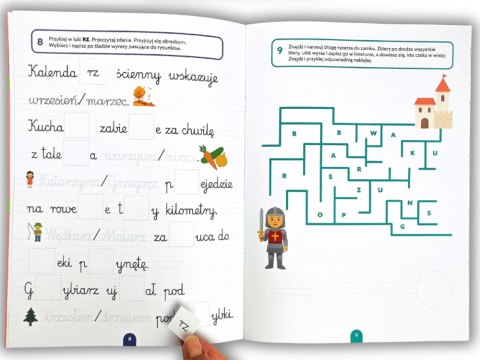 8 Przyklej w luki RZ. Przeczytaj zdania. Przyjrzyj się obrazkom.
Wybierz i napisz po śladzie wyrazy pasujące do rysunków.
Kalenda rz ścienny wskazuje
wrzesień/marzec.
Kucha zabie e za chwilę
z tale a warzywa/owoce.
Katarzyna/Grzegorz p ejedzie
na rowe e t y kilometry.
Wędkarz/Malarz za uca do
eki p ynętę.
G ybiarz uj ał pod
krzesłem/drzewem pod ybki.
rz
8
9 Znajdź i narysuj drogę rycerza do zamku. Zbierz po drodze wszystkie
litery, ułóż wyraz i wpisz go w liniaturze, a dowiesz się, kto czeka w wieży.
Znajdź i przyklej odpowiednią naklejkę.
B B W A
R A K U
R S
Z U
O P G N S
9